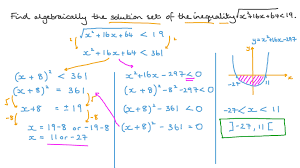 Find algebraically the solution set of the inequality √x²+16x+64 < 19.
√x²+16x+64 < 19
x²+16x+64 < 361
(x+8)² < 361
(x+8)² = 361
x+8 = ±19
-8
-8
x = 19-8 or -19-8
x = 11 or -27
x²+16x-297 < 0
(x+8)²-8²-297 < 0
(x+8)²-361 < 0
(x+8)²-361 = 0
y=x²+16x-297
-27
11
x
-27 < x < 11
]-27,11[